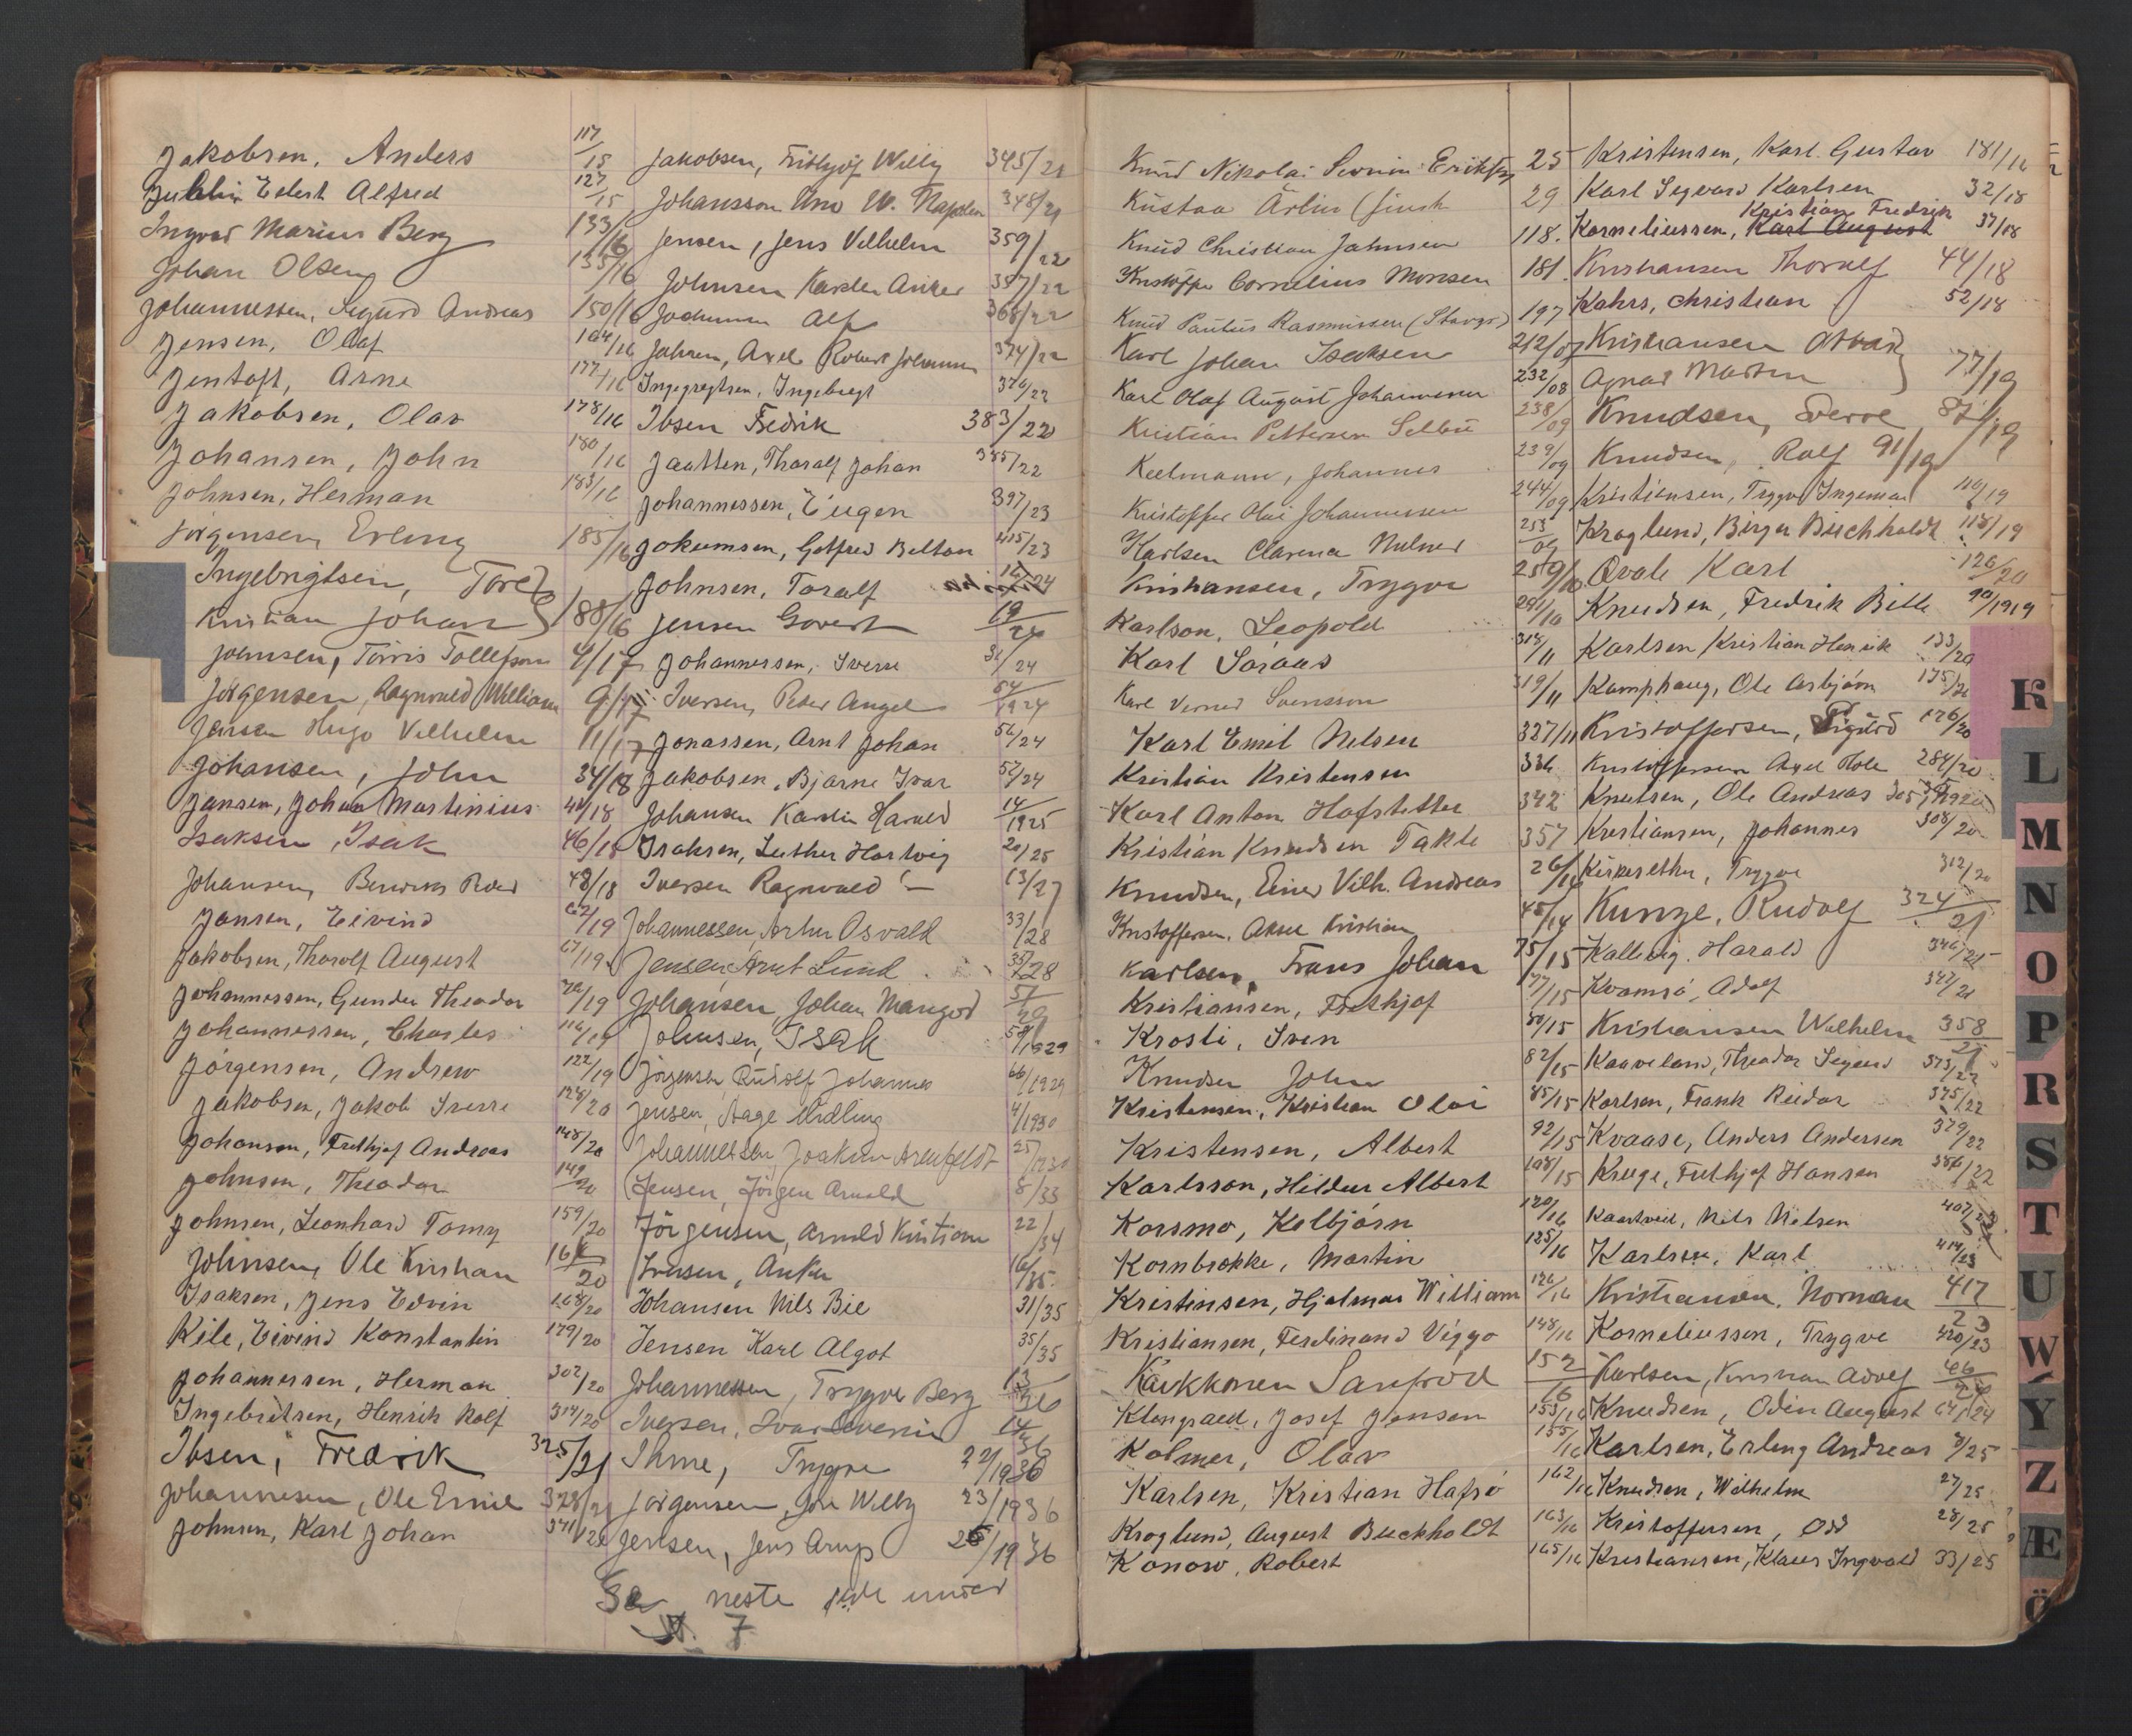 Jakobsen, Anders 117/15
Eilert Alfred 127/15
Ingvar Marius Berg 133/16
Johan Olsen 135/16
Johannessen, Sigurd Andreas 150/16
Jensen, Olaf 164/16
Jentoft, Arne 177/16
Jakobsen, Olav 178/16
Johansen, John 180/16
Johnsen, Herman 183/16
Jörgensen, Erling 185/16
Ingebrigtsen, Tore
Kristian Johan 188/16
Johnsen, Tönis Tollefsen 4/17
Jörgensen, Ragnvald William 9/17
Jensen Hugo Vilhelm 11/17
Johansen, John 34/18
Jansen, Johan Martinius 41/18
Isaksen, Isak 46/18
Johansen, 48/18
Jansen, Eivind 62/19
Jakobsen, Thorolf August 67/19
Johannessen, Gunder Theodor /19
Johannessen, Charles 116/19
Jörgensen, Andrew 122/19
Jakobsen, Jakob Sverre /20
Johansen, Frithjof Andreas 148/20
Johnsen, Theodor 149/20
Johnsen, Leonhard Tomy 159/20
Johnsen, Ole Kristian /20
Isaksen, Jens Edvin 168/20
Kile, Eivind Konstantin 179/20
Johannessen, Herman 302/20
Ingebritsen, Henrik Rolf 314/20
Ibsen, Fredrik 325/21
Johannesen, Ole Emil 328/21
Johnsen, Karl Johan 341/21
Jakobsen, Frithjof Willy 345/21
Johansson Uno W. 348/21
Jensen, Jens Vilhelm 359/22
Johnsen Karsten Anker 357/22
Alf 368/22
Jahren, Axel Robert Johannes 374/22
Ingebregt 376/22
Ibsen Fredrik 383/22
Jaatten, Thoralf Johan 385/22
Johannessen, Eugen 397/23
Jokumsen, Gotfred Belton 415/23
Johnsen, Toralf 16/24
Jensen Govert 19/24
Johannessen, Sverre 31/24
Iversen, Peder Angel 54/1924
Jonassen, Arnt Johan 56/24
Jakobsen, Bjarne Ivar 57/24
Johansen Karstin Harald 14/1925
Isaksen, Luther Hartvig 20/25
Iversen Ragnvald 13/27
Johannessen, Artur Osvald 33/28
Jensen Arnt Lund 35/28
Johansen, Johan Mangor 51/29
Johnsen, Isak 59/1929
Jörgensen Rudolf Johannes 66/1929
Jensen, Aage Midling 4/1930
Johannessen, Joakim Arenfeldt 25/1930
Jensen, Jörgen Arnold 8/33
Jörgensen, Arnold Kristian 22/34
Iversen, Anker 16/35
Johansen Nils Bie 31/35
Jensen Karl Algot 35/35
Johannessen, Trygve Berg 13/36
Iversen, Ivar Severin 14/36
Ihme, Trygve 22/1936
Jörgensen, Willy 23/1936
Jensen, Jens Arup 26/1936
Se neste side under
Knud Nikolai Severin Eriksen 25
Kustaa Ärlin (finsk 29
Knud Christian Jahnsen 118.
Kristoffer Cornelius Monsen 181.
Knud Paulus Rasmussen (Stavgr) 197
Karl Johan Isaksen 212/07
Karl Olaf August Johannesen 232/08
Kristian Pettersen Selbu 238/09
Keelmann, Johannes 239/09
Kristoffer Olai Johannessen 244/09
Karlsen Clarena Milner 253/09
Kristiansen, Trygve 259/10
Karlson, Leopold 291/10
Karl Soraas 318/11
Karl Verner Svensson 319/11
Karl Emil Nelsen 327/11
Kristian Kristensen 336
Karl Anton Hofstetter 342
Kristian Knudsen Takle 357
Knudsen, Einar Vilh. Andreas 26/14
Kristoffersen, Aksel Kristian 45/14
Karlsen, Frans Johan 75/15
Kristiansen, Frithjof 77/15
Krosli, Sven 80/15
Knudsen John 82/15
Kristensen, Kristian Olai 85/15
Kristensen, Albert 92/15
Karlsson, Hildur Albert 108/15
Korsmo, Kolbjörn 120/16
Kornbrekke, Martin 125/16
Kristinsen, Hjalmar William 126/16
Kristiansen, Ferdinand Viggo 148/16
Kaukkonen Sanfrid 152/16
Klongraed, Josef Jensen 153/16
Kolmer, Olav 155/16
Karlsen, Kristian Hafsö 162/16
Kroglund, August Buckholdt 163/16
Konow, Robert 165/16
Kristensen, Karl Gustav 181/16
Karl Sigvard Karlsen 32/18
Kristian Fredrik
Korneliussen, Karl August 37/18
Kristiansen Thoralf 44/18
Kahrs, Christian 52/18
Kristiansen Otvar
Agnar Martin 77/19
Knudsen, Sverre 87/19
Knudsen, Rolf 91/19
Kristiansen, Trygve Ingemar 110/19
Kroglund, Birger Buchholdt 118/19
Qvale Karl 126/20
Knudsen, Fredrik Bille 90/1919
Karlsen Kristian Henrik 133/20
Kamphaug, Ole Asbjörn 175/20
Kristoffersen, Sigurd 176/20
Kristoffersen Axel Hole 284/20
Knutsen, Ole Andreas 305/1920
Kristiansen, Johannes 308/20
Kirkesether, Trygve 312/20
Kunze, Rudolf 324/21
Kallevig, Harald 346/21
Kvamsö, Adolf 347/21
Kristiansen Wilhelm 358/21
Kaaveland, Theodor Sigurd 373/22
Karlsen, Frank Reidar 375/22
Kvaase, Anders Andersen 379/22
Kruge, Frithjof Hansen 386/22
Kaartveit, Nils Nilsen 407/23
Karlsen, Karl 414/23
Kristiansen, Norman 417/23
Korneliussen, Trygve 420/23
Karlsen, Kristian Adolf 46/24
Knudsen, Odin August 64/24
Karlsen, Erling Andreas 8/25
Knudsen, Wilhelm 27/25
Kristoffersen, Odd 28/25
Kristiansen, Klaus Ingvald 33/25
K
L
M
N
O
P
R
S
T
U
W
Y
Z
Æ
Ö